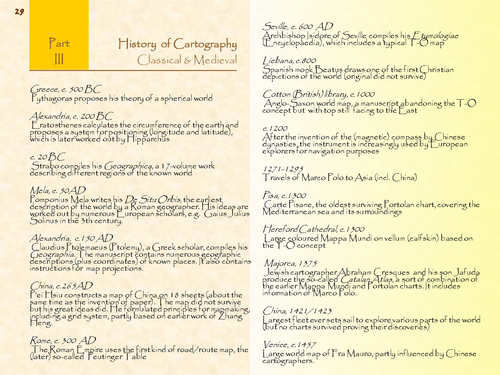 29
Part
III
History of Cartography
Classical & Medieval
Greece, c. 500 BC
Pythagoras proposes his theory of a spherical world
Alexandria, c. 200 BC
Eratosthenes calculates the circumference of the earth and
proposes a system for positioning (longitude and latitude),
which is later worked out by Hipparchus
c. 20 BC
Strabo compiles his Geographica, a 17-volume work
describing different regions of the known world
Mela, c. 50 AD
Pomponius Mela writes his De Situ Orbis, the earliest
description of the world by a Roman geographer. His ideas are
worked out by numerous European scholars, e.g. Gaius Julius
Solinus in the 3th century.
Alexandria, c.150 AD
Claudius Ptolemaeus (Ptolemy), a Greek scholar, compiles his
Geographia. The manuscript contains numerous geographic
descriptions, plus coordinates of known places. It also contains
instructions for map projections.
China, c.265 AD
Pei Hsiu constructs a map of China on 18 sheets (about the
same time as the invention of paper). The map did not survive
but his great ideas did. He formulated principles for mapmaking,
including a grid system, partly based on earlier work of Zhang
Heng.
Rome, c. 300 AD
The Roman Empire uses the first kind of road/route map, the
(later) so-called Peutinger Table
Seville, c. 600 AD
Archbishop Isidore of Seville compiles his Etymologiae
(Encyclopaedia), which includes a typical T-O map
Liebana, c.800
Spanish monk Beatus draws one of the first Christian
depictions of the world (original did not survive)
Cotton (British) library, c.1000
Anglo-Saxon world map, a manuscript abandoning the T-O
concept but with top still facing to the East
c.1200
After the invention of the (magnetic) compass by Chinese
dynasties, the instrument is increasingly used by European
explorers for navigation purposes
1271-1295
Travels of Marco Polo to Asia (incl. China)
Pisa, c.1300
Carte Pisane, the oldest surviving Portolan chart, covering the
Mediterranean sea and its surroundings
Hereford Cathedral, c.1300
Large coloured Mappa Mundi on vellum (calfskin) based on
the T-O concept
Majorca, 1375
Jewish cartographer Abraham Cresques and his son Jafuda
produce the so-called Catalan Atlas, a sort of combination of
the earlier Mappa Mundi and Portolan charts. It includes
information of Marco Polo.
China, 1421/1423
Largest fleet ever sets sail to explore various parts of the world
(but no charts survived proving their discoveries)
Venice, c.1457
Large world map of Fra Mauro, partly influenced by Chinese
cartographers.